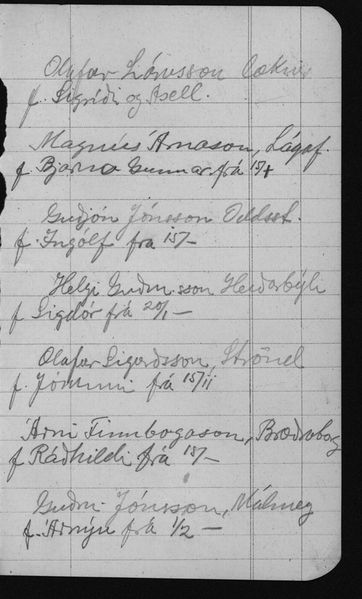 Olafur Lárusson Læknir
f. Sigríði og Axell.
Magnús Árnason, Lágaf.
f. Bjarna Gunnar frá 15/1
Guðjón Jónsson Oddsst.
f. Ingólf frá 15/–
Helgi Guðm.sson Heiðarbýli
f Sigdór frá 20/1 –
Olafur Sigurðsson, Strönd
f. Jómmu frá 15/11
Árni Finnbogason, Bræðrabog
f Ráðhildi frá 15/–
Guðm. Jónsson, Málmey
f. Árnýu frá 1/2 –